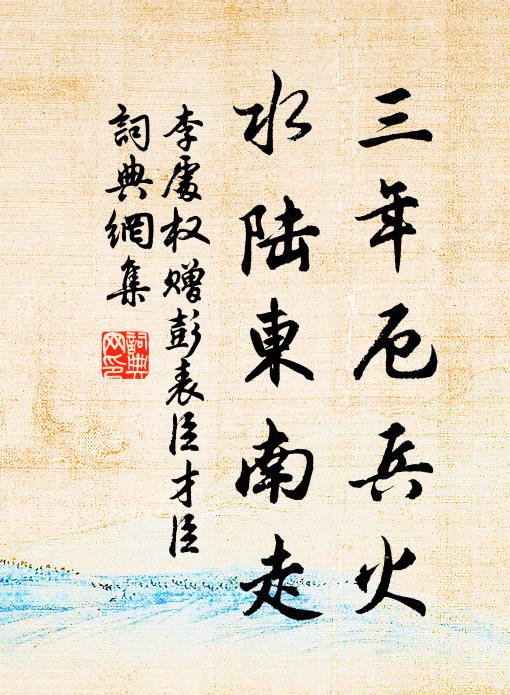 三年厄兵火
水陆東南走
李處权赠彭表臣才臣
詞典網集
詞典网印